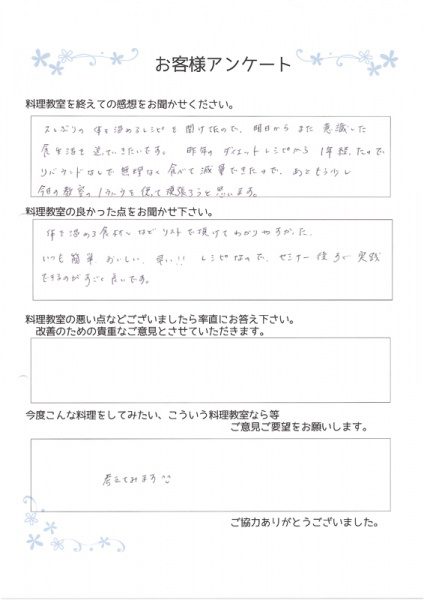 お客様アンケート
料理教室を終えての感想をお聞かせください。
久しぶりの体を温めるレシピを聞けたので、明日からまた意識した
食生活を送っていきたいです。昨年のダイエットレシピから1年経ったので
リバウンドなしで無理なく食べて減量できたので、あともう少し
今日の教室の を使って頑張ろうと思います。
料理教室の良かった点をお聞かせ下さい。
体を温める食材などリストで頂けてわかりやすかった。
いつも簡単 おいしい、早い!! レシピなので、セミナー後すぐ実践
できるのがすごく良いです。
料理教室の悪い点などございましたら率直にお答え下さい。
改善のための貴重なご意見とさせていただきます。
今度こんな料理をしてみたい、こういう料理教室なら等
ご意見ご要望をお願いします。
考えてみます
ご協力ありがとうございました。